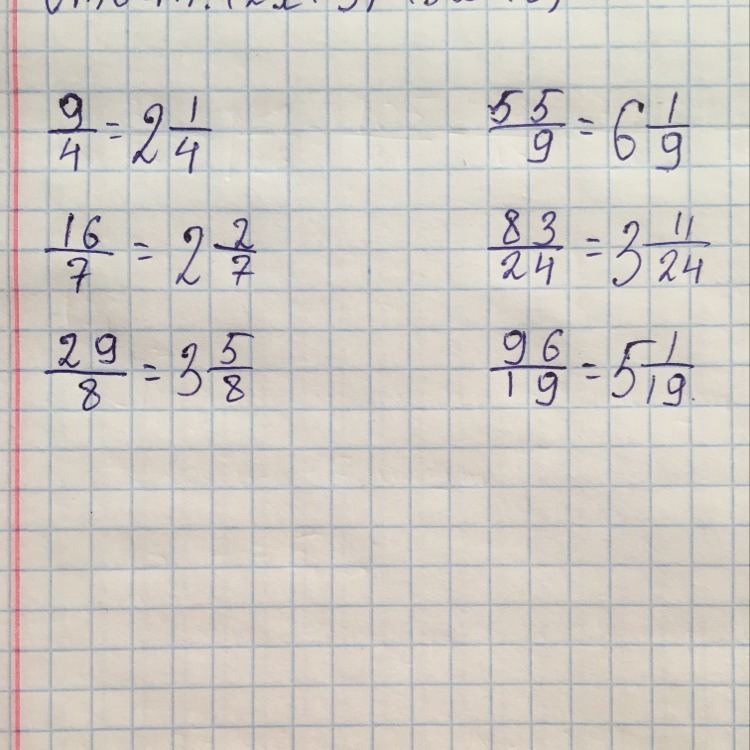 9/4 = 2 1/4
55/9 = 6 1/9
16/7 = 2 2/7
83/24 = 3 11/24
29/8 = 3 5/8
96/19 = 5 1/19